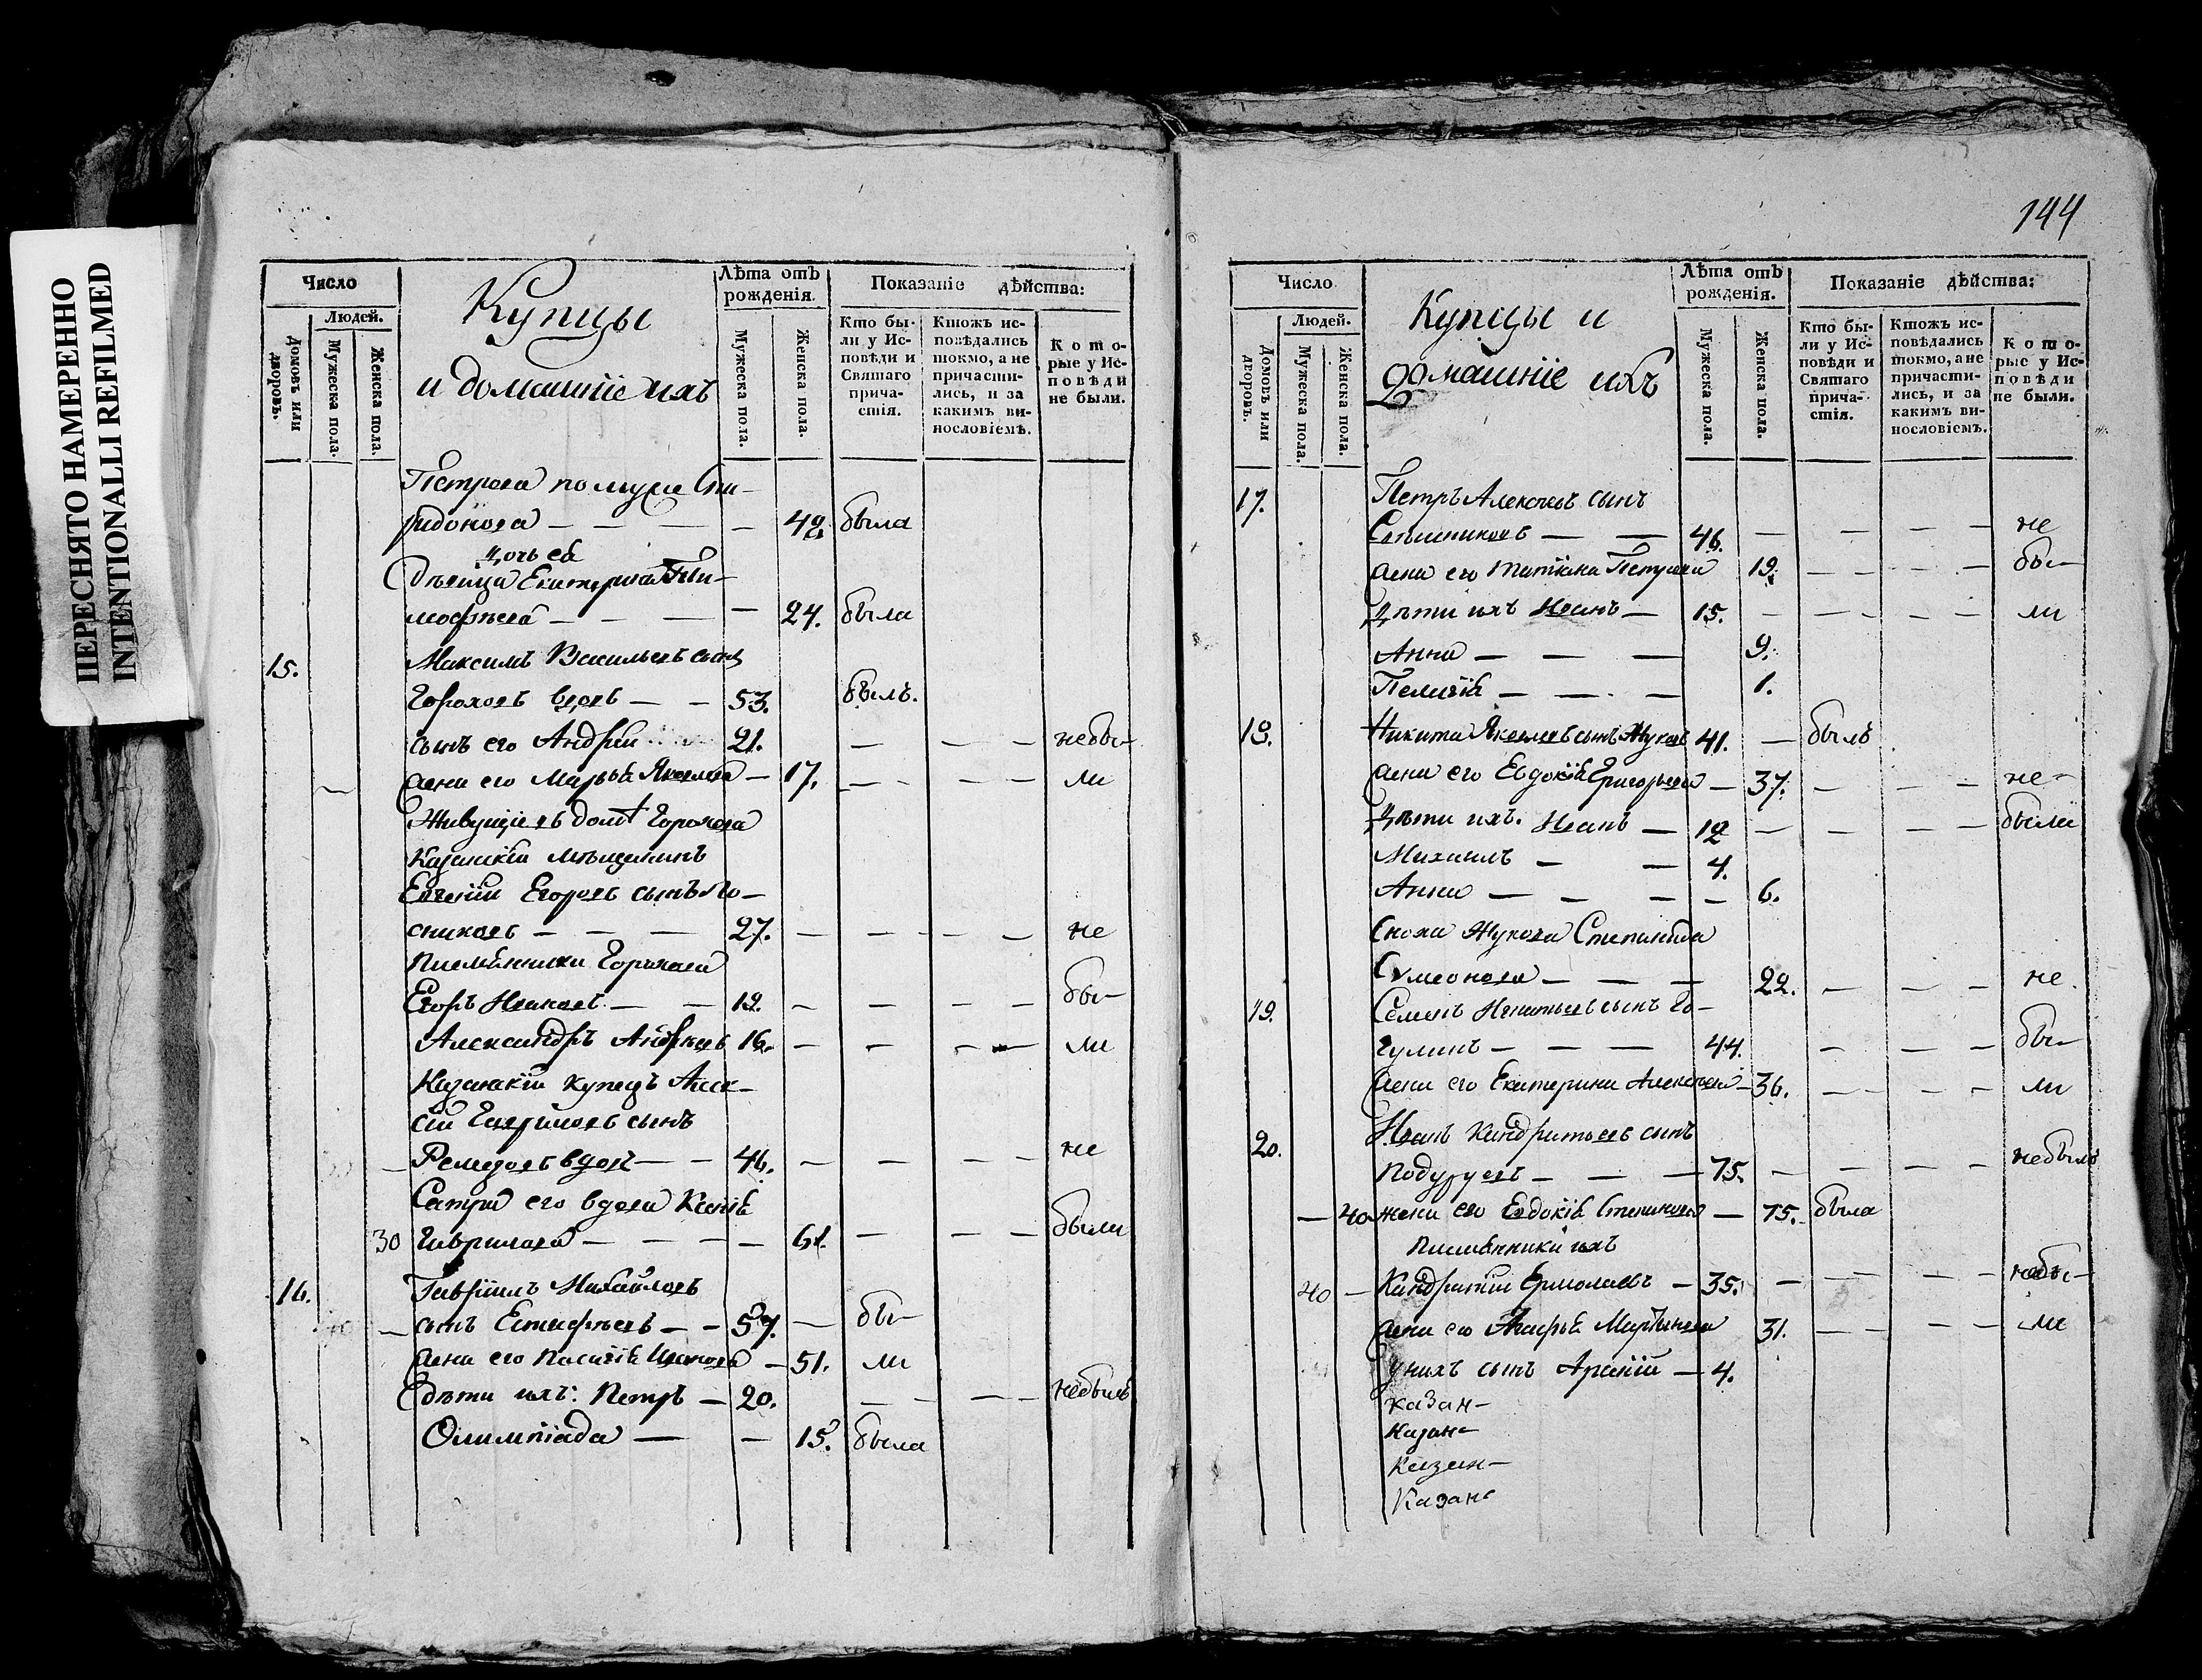 ПЕРЕСНЯТО НАМЕРЕННО
INTENTIONALLI REFILMED
Число
Людей.
Домовъ или дворовъ.
Мужеска пола.
Женска пола.
Купцы
и домашніе ихъ
Лѣта отъ рожденія.
Мужеска пола.
Женска пола.
Показаніе дѣйства:
Кто бы-
ли у Ис-
повѣди и
Святаго
прича-
стія.
Ктожъ ис-
повѣдались
токмо, а не
причасти-
лись, и за
какимъ ви-
нословіемъ.
Кото-
рые у Ис-
повѣди
не были.
Петрова по мужѣ Спи-
ридонова — — — — 48 была
дочь ея
Дѣвица Екатерина Ти-
мофѣева — — — — 24. была
15. Максимъ Васильевъ сынъ
Гороховъ вдовъ — — 53. былъ.
сынъ его Андрей 21. — — — небы-
жена его Марья Яковлева — 17. — — — — ли
Живущіе въ домѣ Горохова
Казанскій мѣщанинъ
Евгеній Егоровъ сынъ
сниковъ — — — 27. — — — — — не
Племянники Горохова
Егоръ Ивановъ — — 19. — — — — бы-
Александръ 16. — — — — ли
Казанскій купецъ Алек-
сѣй Гавриловъ сынъ
Ремезовъ вдовъ — — 46. — — — — не
Сестра его вдова Ксенія
30 Гаврилова — — — — 61. — — — были
16. Гавріилъ Михайловъ
сынъ Евстафьевъ — — 57. — бы-
жена его Пелагія Иванова — 51. ли
дѣти ихъ: Петръ — 20. — — — — небылъ
Олимпіада — — 15. была
144
Число
Людей.
Домовъ или дворовъ.
Мужеска пола.
Женска пола.
Купцы и
домашніе ихъ
Лѣта отъ рожденія.
Мужеска пола.
Женска пола.
Показаніе дѣйства:
Кто бы-
ли у Ис-
повѣди и
Святаго
прича-
стія.
Ктожъ ис-
повѣдались
токмо, а не
причасти-
лись, и за
какимъ ви-
нословіемъ.
Кото-
рые у Ис-
повѣди
не были.
17. Петръ Алексѣевъ сынъ
— — 46. — — — — не
жена его Татіана Петрова 19. — — — — бы-
дѣти ихъ Иванъ — 15. — — — — — ли
Анна — — — 9.
Пелагія — — — 1.
18. Никита Яковлевъ сынъ Жуковъ 41. — былъ
жена его Евдокія Григорьева — 37. — — — не-
дѣти ихъ. Иванъ — 12 — — — — были
Михаилъ — — 4.
Анна — — — — 6.
Сноха Жукова Степанида
Сумеонова — — — 22. — — — не.
19. Семенъ Игнатьевъ сынъ Го-
гулинъ — — — 44. — — — бы-
жена его Екатерина Алексѣева — 36. — — — ли
20. Иванъ Кондратьевъ сынъ
Подуруевъ — — — 75. — — — — небылъ
— 40 жена его Евдокія Степанова — 75. была
Племянники ихъ
40 — Кондратій Ермолаевъ — 35. — — — — небы-
жена его Агафья Мартынова 31. — — — — ли
у нихъ сынъ — 4.
казан-
Казан-
Казан-
Казан-